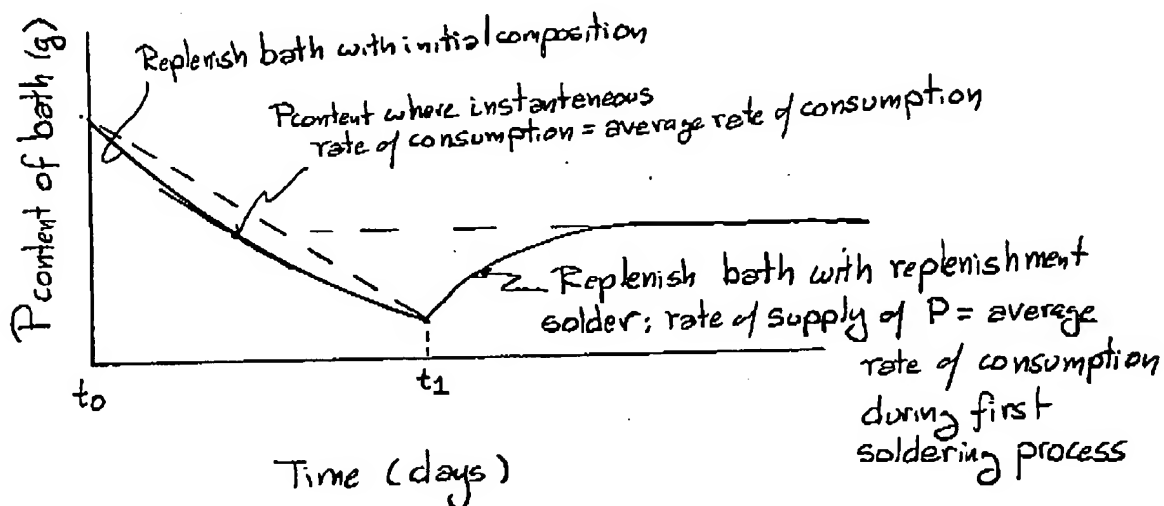 P content of bath (g)
Replenish bath with initial composition
P content where instanteneous
rate of consumption = average rate of consumption
Replenish bath with replenishment
solder; rate of supply of P = average
rate of consumption
during first
soldering process
t0
t1
Time (days)